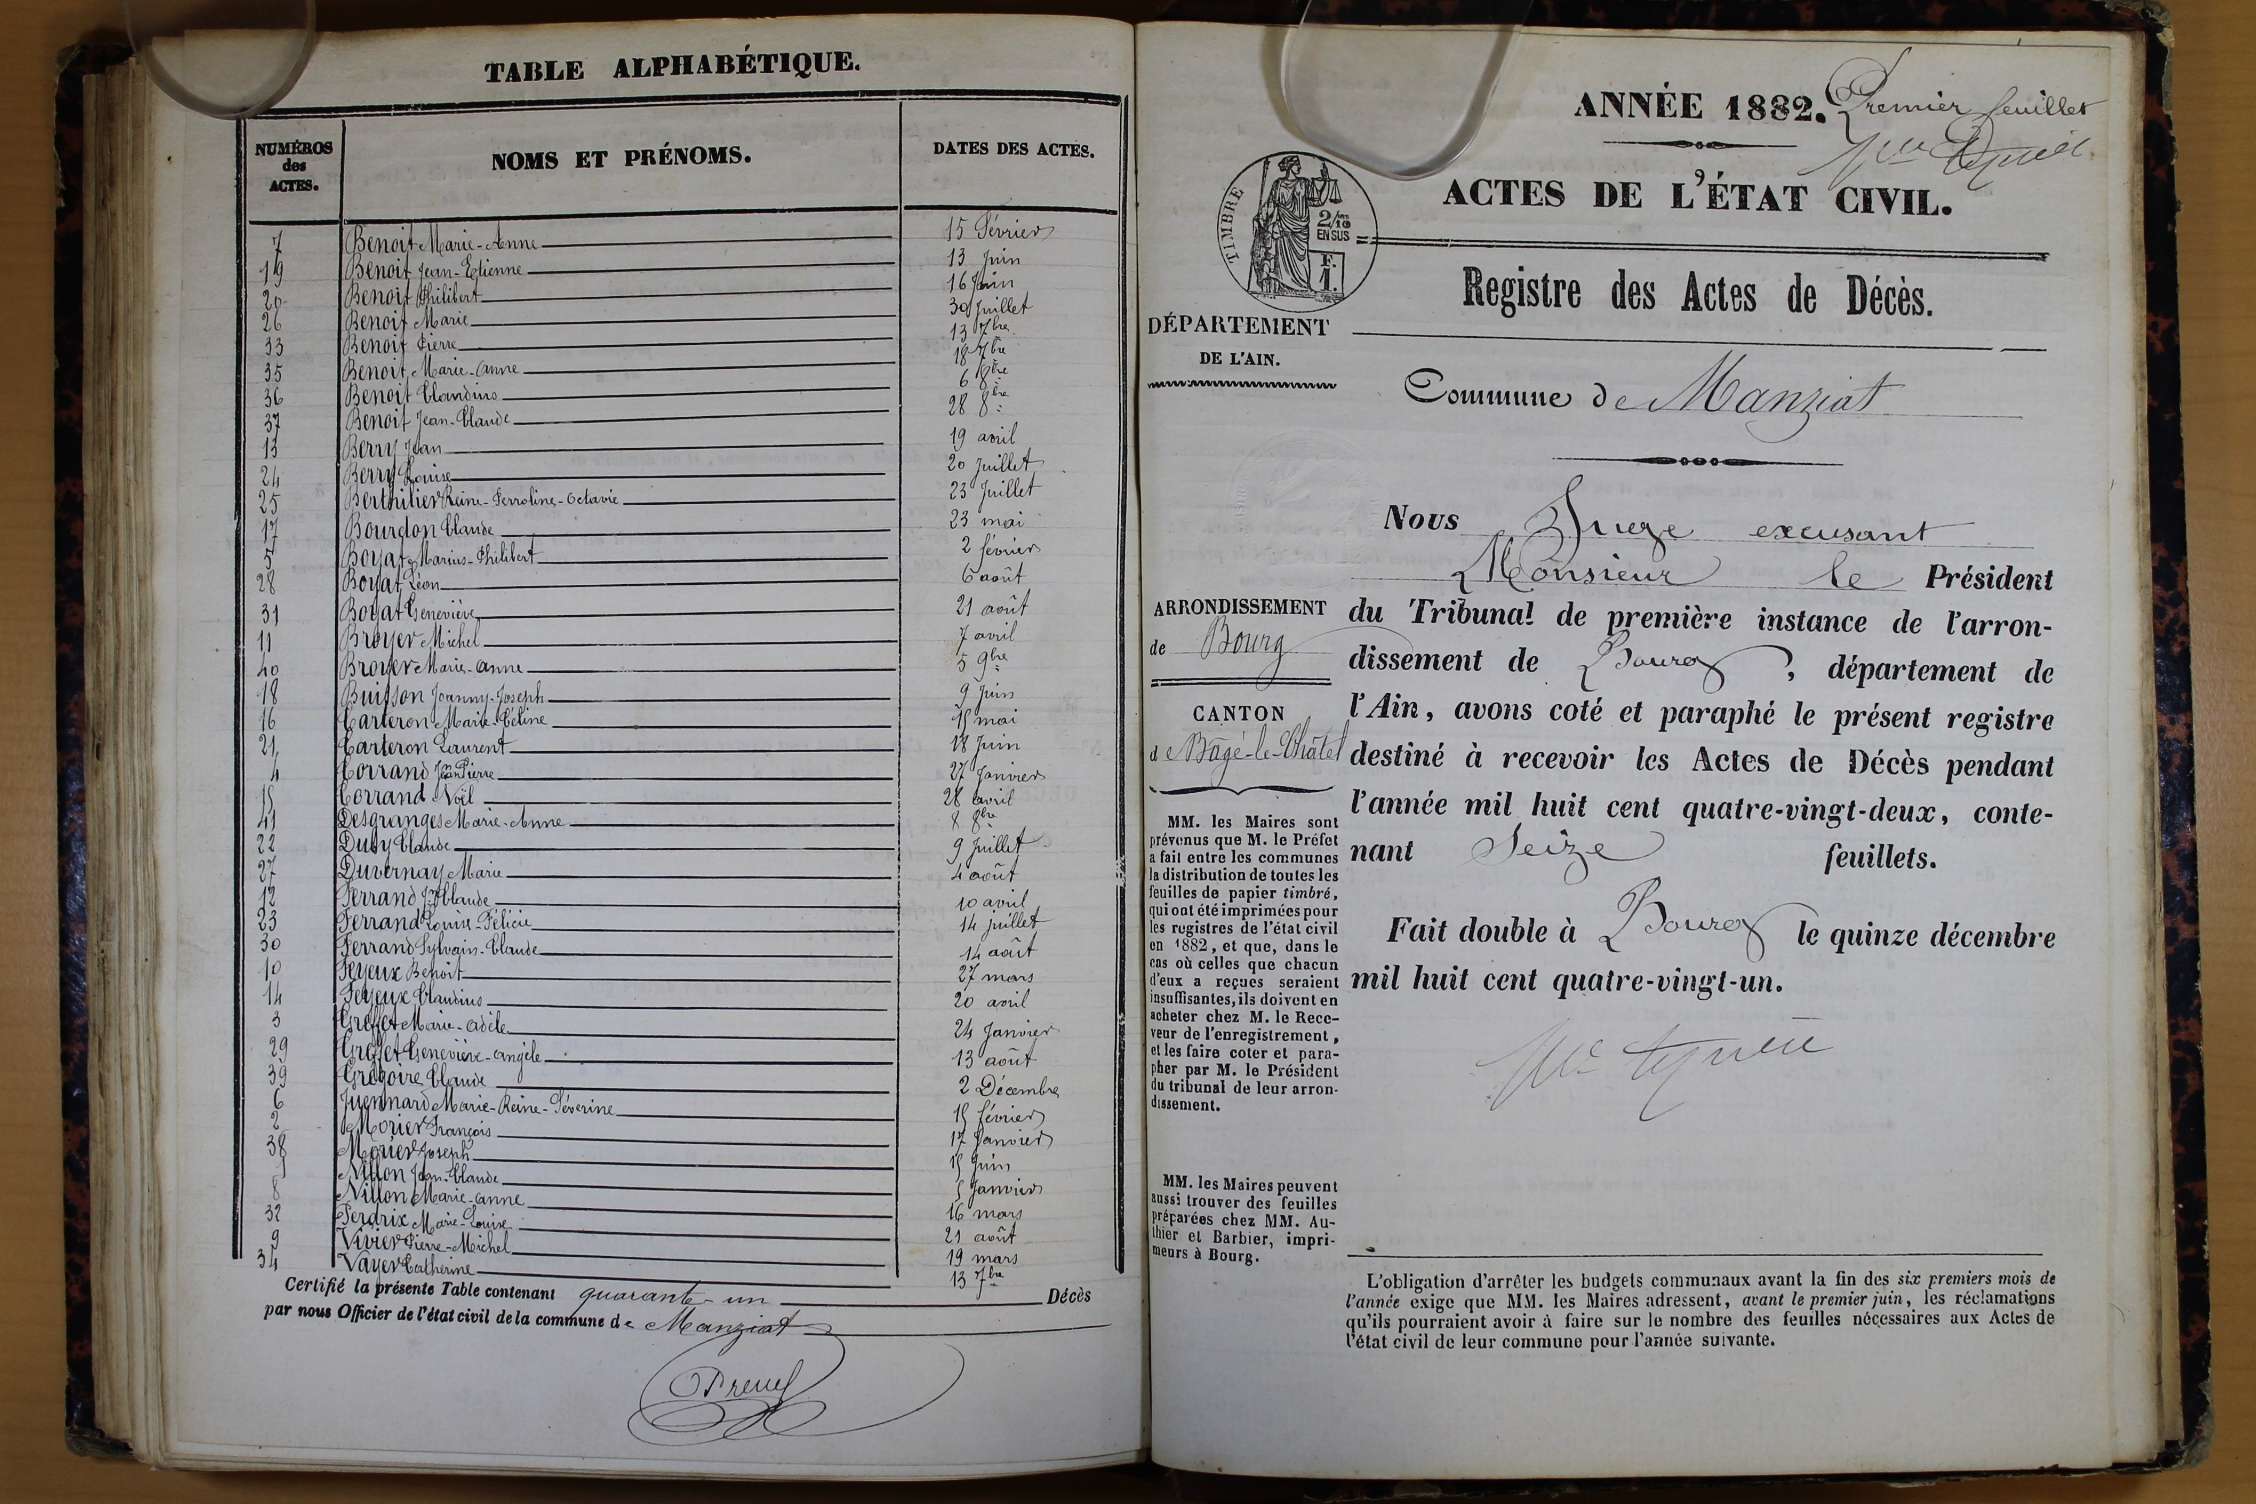 TABLE ALPHABÉTIQUE.
NUMÉROS des ACTES. NOMS ET PRÉNOMS. DATES DES ACTES.
7 Benoit Marie-Anne 15 Février
19 Benoit Jean-Etienne 13 Juin
20 Benoit Philibert 16 Juin
26 Benoit Marie 30 Juillet
33 Benoit Pierre 13 7bre
35 Benoit Marie-Anne 18 7bre
36 Benoit Claudius 6 8bre
37 Benoit Jean-Claude 28 8bre
13 Berry Jean 19 avril
24 Berry Louise 20 Juillet
25 Berthilier Reine-Perroline-Octavie 23 Juillet
17 Bourdon Claude 23 mai
5 Boyat Marius-Philibert 2 février
28 Boyat Léon 6 août
31 Boyat Geneviève 21 août
11 Broyer Michel 7 avril
40 Broyer Marie-anne 5 9bre
18 Buisson Joanny-Joseph 9 Juin
16 Carteron Marie-Céline 15 mai
21 Carteron Laurent 18 Juin
4 Corrand Jean Pierre 27 Janvier
15 Corrand Noël 28 avril
41 Desgranges Marie-Anne 8 8bre
22 Duby Claude 9 Juillet
27 Duvernay Marie 4 août
12 Ferrand Jn Claude 10 avril
23 Ferrand Louise-Félicie 14 juillet
30 Ferrand Sylvain-Claude 14 août
10 Feyeux Benoit 27 mars
14 Feyeux Claudius 20 avril
3 Greffet Marie-adèle 24 Janvier
29 Greffet Geneviève-angèle 13 août
39 Grégoire Claude 2 Décembre
6 Juennard Marie-Reine-Séverine 15 février
2 Morier François 17 Janvier
38 Morier Joseph 15 Juin
1 Nillon Jean-Claude 5 Janvier
8 Nillon Marie-anne 16 mars
32 Perdrix Marie-Louise 21 août
9 Vivier Pierre-Michel 19 mars
34 Vayer Catherine 13 7bre
Certifié la présente Table contenant quarante-un Décès
par nous Officier de l'état civil de la commune de Manziat
ANNÉE 1882. Premier feuillet
ACTES DE L'ÉTAT CIVIL.
TIMBRE
2/10 EN SUS
F. 1.
Registre des Actes de Décès.
DÉPARTEMENT
DE L'AIN.
Commune de Manziat
Nous Juge excusant
Monsieur le Président
du Tribunal de première instance de l'arron-
dissement de Bourg, département de
l'Ain, avons coté et paraphé le présent registre
destiné à recevoir les Actes de Décès pendant
l'année mil huit cent quatre-vingt-deux, conte-
nant Seize feuillets.
Fait double à Bourg le quinze décembre
mil huit cent quatre-vingt-un.
ARRONDISSEMENT
de Bourg
CANTON
de Bâgé-le-Châtel
MM. les Maires sont
prévenus que M. le Préfet
a fait entre les communes
la distribution de toutes les
feuilles de papier timbré,
qui ont été imprimées pour
les registres de l'état civil
en 1882, et que, dans le
cas où celles que chacun
d'eux a reçues seraient
insuffisantes, ils doivent en
acheter chez M. le Rece-
veur de l'enregistrement,
et les faire coter et para-
pher par M. le Président
du tribunal de leur arron-
dissement.
MM. les Maires peuvent
aussi trouver des feuilles
préparées chez MM. Au-
thier et Barbier, impri-
meurs à Bourg.
L'obligation d'arrêter les budgets communaux avant la fin des six premiers mois de
l'année exige que MM. les Maires adressent, avant le premier juin, les réclamations
qu'ils pourraient avoir à faire sur le nombre des feuilles nécessaires aux Actes de
l'état civil de leur commune pour l'année suivante.